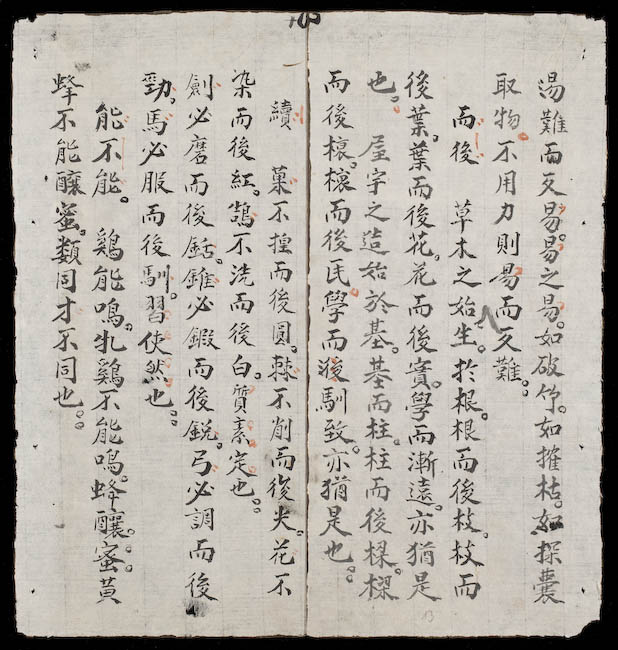 湯難而反易易之易如破竹如摧枯如探囊
取物不用力則易而反難
而後 草木之始生於根根而後枝枝而
後葉葉而後花花而後實學而漸遠亦猶是
也 屋宇之造始於基基而柱柱而後樑樑
而後榱榱而後民學而後馴致亦猶是也
續 菓不揑而後圓棘不削而後尖花不
染而後紅鵠不洗而後白質素定也
劍必磨而後銛錐必鍛而後銳弓必調而後
勁馬必服而後馴習使然也
能不能 鷄能鳴牝鷄不能鳴蜂釀蜜黃
蜂不能釀蜜類同才不同也